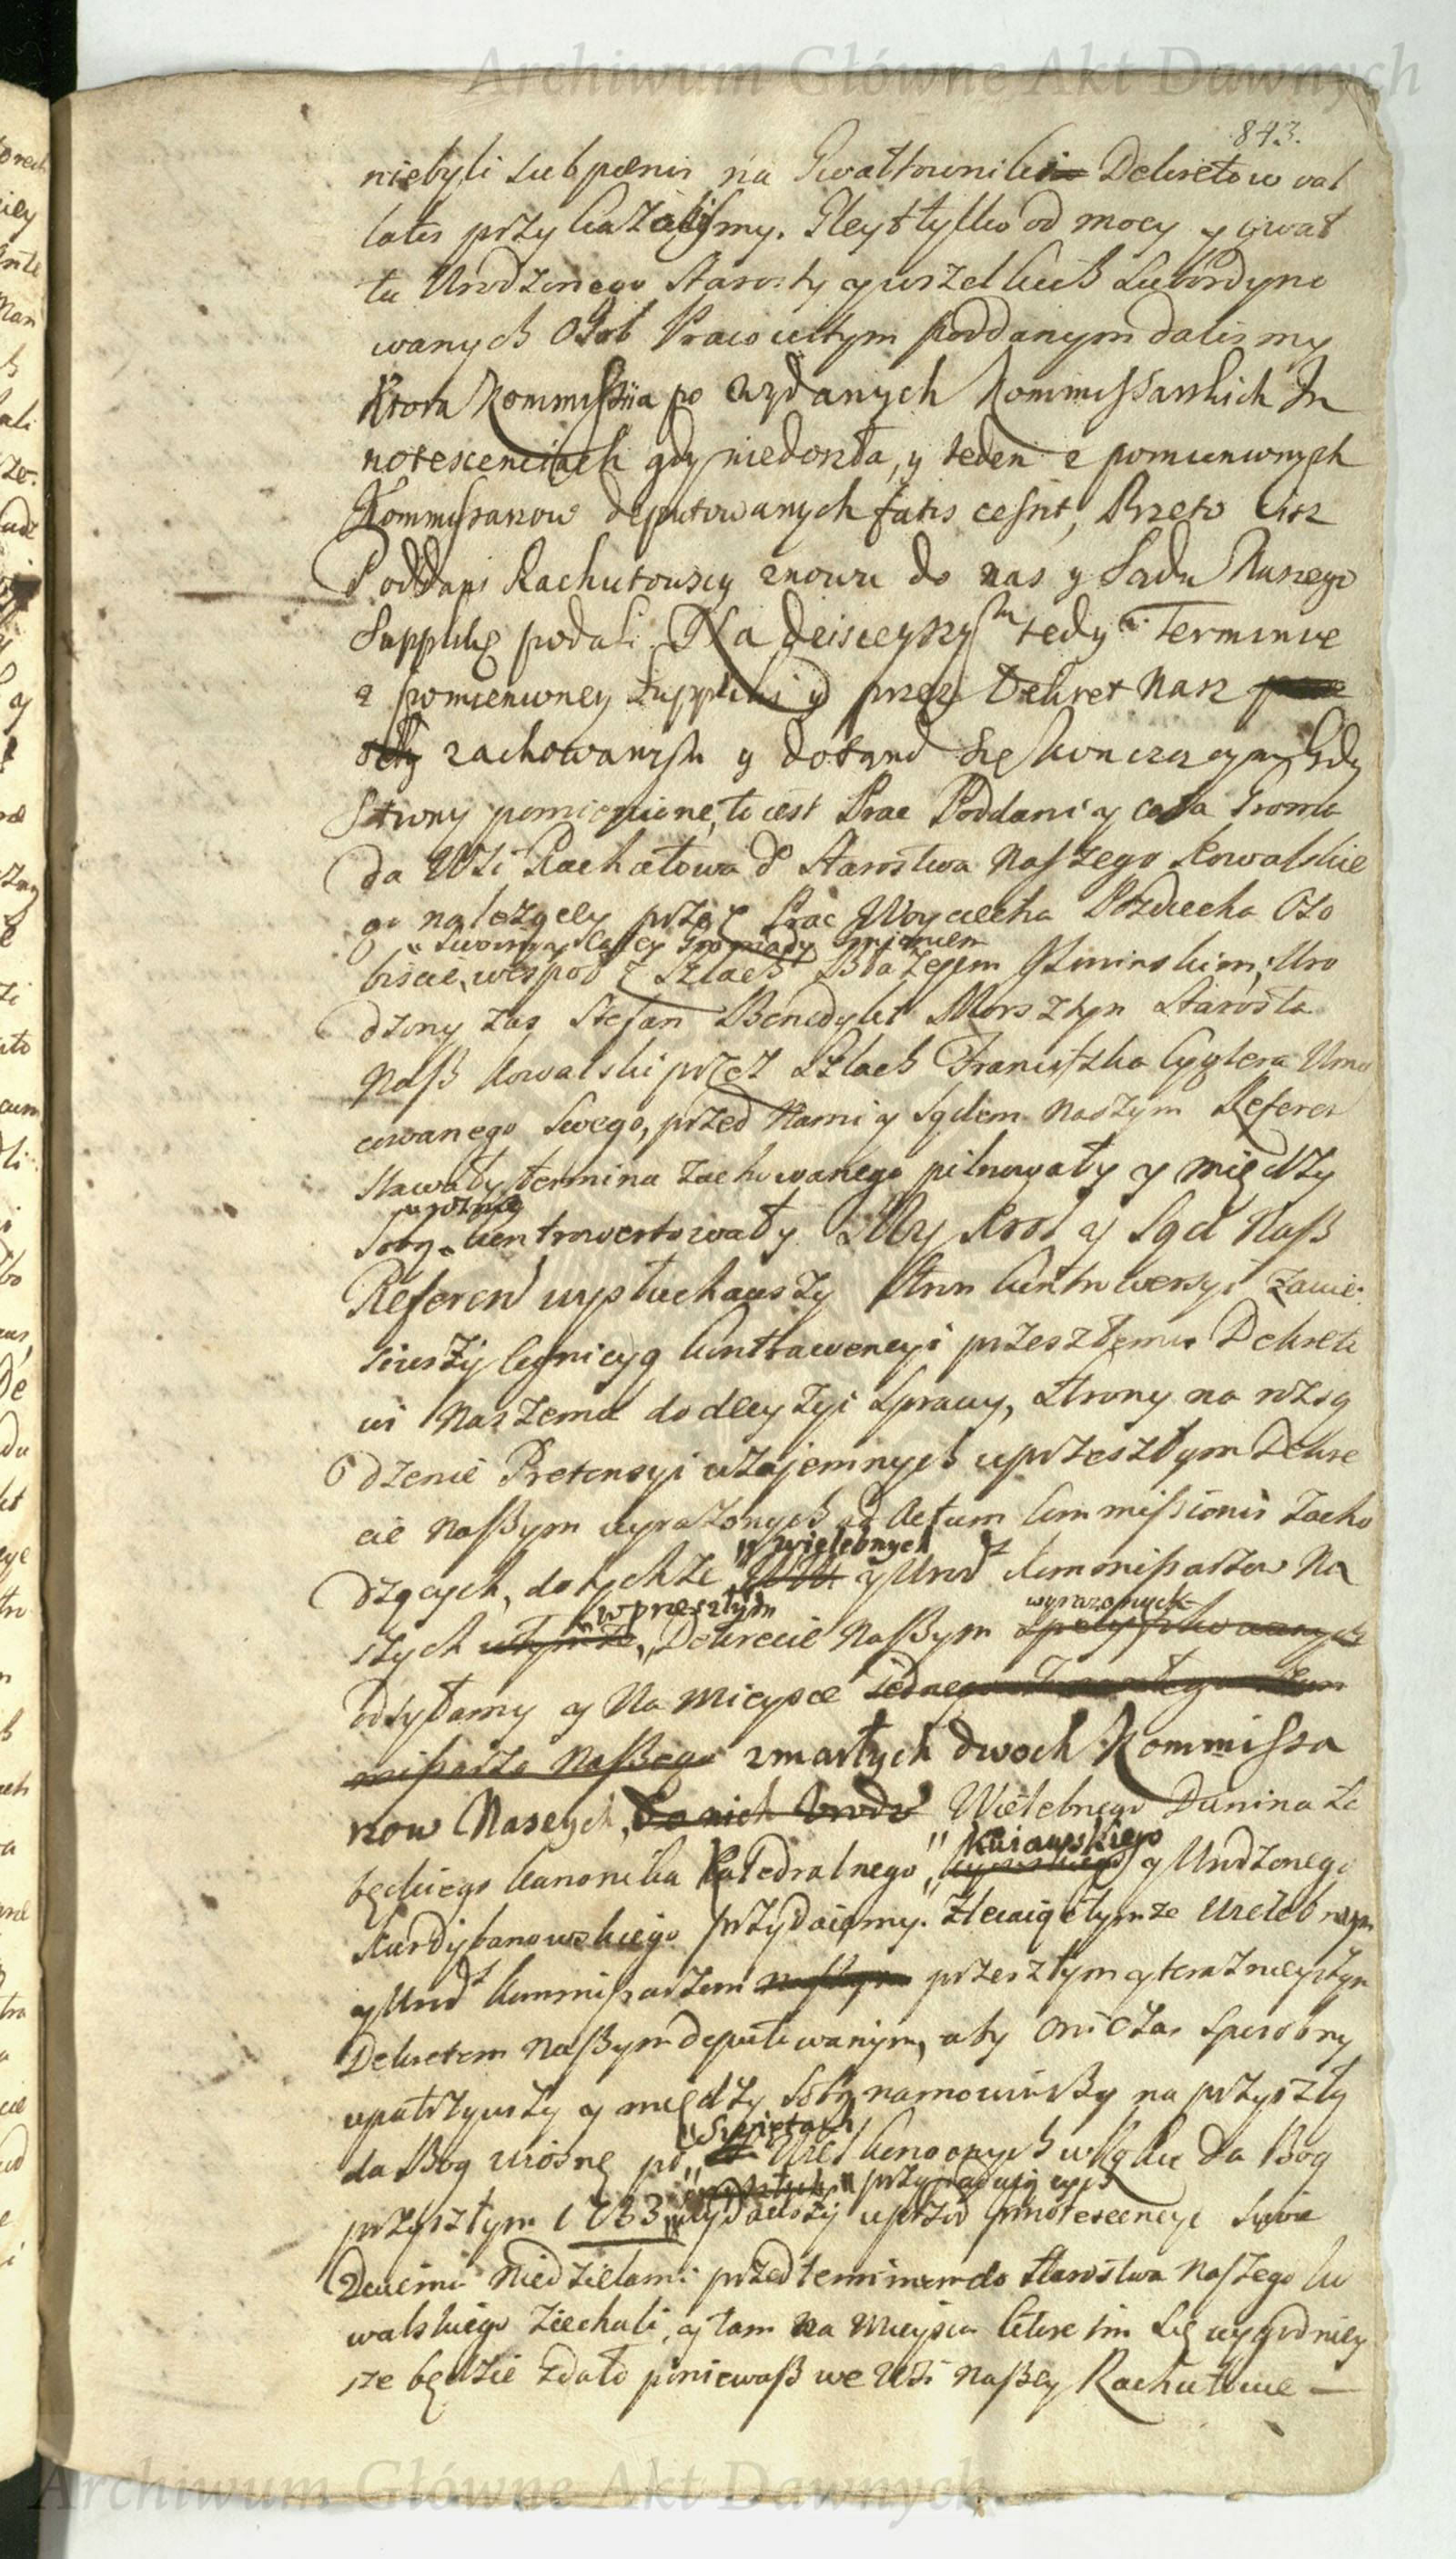 Archiwum Główne Akt Dawnych
843.
niebyli sub pœnis na Gwałtowniki Dekretow val
latis przykazalismy. Gleyt tylko od mocy y gwał
tu Urodzonego Starosty y wszelkich Subordyno
wanych Osob Pracowitym poddanym dalismy
Ktora Kommissia po wydanych Kommissarskich In
notescenciach gdy niedoszła, y ieden z pomienionych
Kommissarzow deputowanych fatis cessit, Przeto ciż
Poddani Rachutowscy znowu do nas y Sądu Naszego
Supplikę podali. Na dzisieyszym tedy Terminie
z pomienioney Suppliki y przez Dekret Nasz
zachowanym y dotąd się kończącym Gdy
Strony pomienione, to iest Prac Poddani y cała Groma
da Wsi Rachutowa do Starostwa Naszego Kowalskie
go należącey przez Prac Woyciecha Pozdziecha Oso
" Swoim y całey Gromady imieniem
biscie, wespoł z Szlach Błażejem Gliminskim, Uro
dzony zas Stefan Benedykt Morsztyn Starosta
Nasz Kowalski przez Szlach Franciszka Cyglera Umo
cowanego Swego, przed Nami y Sądem Naszym Referen
stawały, termina zachowanego pilnowały y między
u różnie
Sobą kontrowertowały. My Krol y Sąd Nasz
Referen wysłuchawszy Stron kontrowersyi zawie
siwszy legnicyą kontrawencyi przeszłemu Dekreto
wi Naszemu do decyzyi Sprawy, Strony na rozsą
dzenie Pretensyi wzajemnych w przeszłym Dekre
cie Naszym wyrażonych ad Actum Commissionis zacho
" Wielebnych
dzących, do tychże y Urodz Kommissarzow Na
w przeszłym wyrazonych
szych w tymże Dekrecie Naszym specyfikowanych
odsyłamy y Na mieysce iednego zmarłego Kom
missarza Naszego zmarłych dwoch Kommissa
rzow Naszych, Wielebnego Dunina Za
" Kuiawskiego
będzkiego Kanonika Katedralnego y Urodzonego
Kurdybanowskiego przydaiemy. Zlecaiąc tymże Wielebnym
y Urodz Kommissarzom naszym przeszłym y teraznieyszym
Dekretem Naszym deputowanym, aby oni czas sposobny
upatrzywszy y między sobą namowiwszy na przyszłą
" Swiętach
da Bog wiosnę po Wielkonocnych w Roku Da Bog
" przypadaiących
przyszłym 1733 wydawszy wprzod innotescencye swoie
Dwiema Niedzielami przed terminem do Starostwa Naszego Ko
walskiego ziechali, y tam na mieyscu ktore im się wygodniey
sze będzie zdało poniewasz we Wsi Naszey Rachutowie —
Archiwum Główne Akt Dawnych